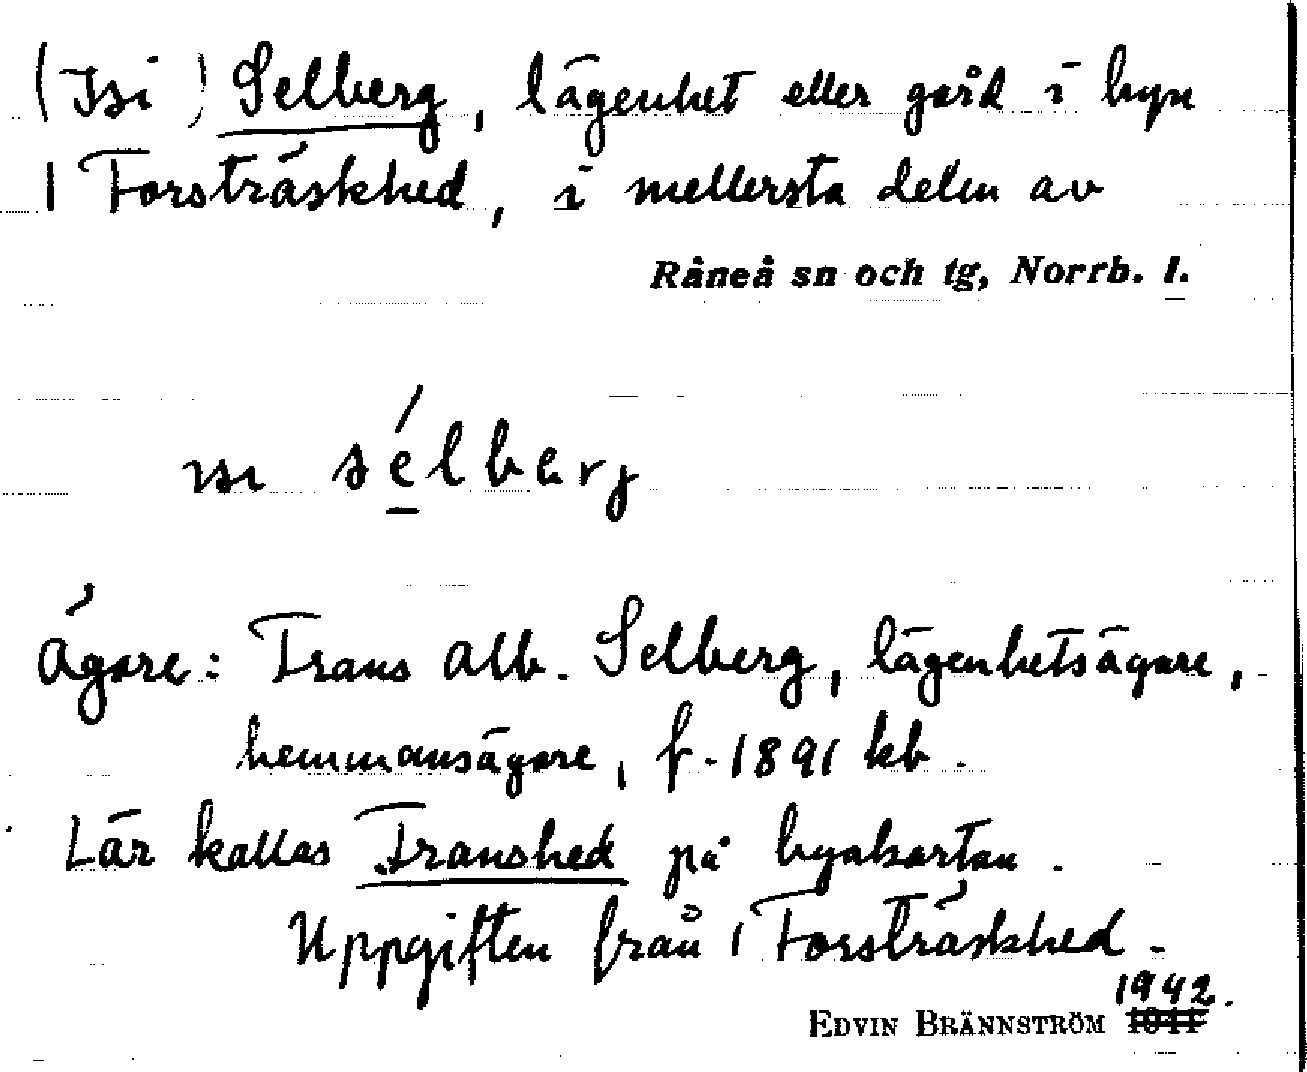 (Isi) Selberg, lägenhet eller gård i byn
1 Forsträskhed, i mellersta delen av
Råneå sn och tg, Norrb. l.
ɪsɪ sélbærj
Ägare: Frans Alb. Selberg, lägenhetsägare,
hemmansägare, f. 1891 kb.
Lär kallas Franshed på byakartan.
Uppgiften från 1 Forsträskhed.
1942.
EDVIN BRÄNNSTRÖM